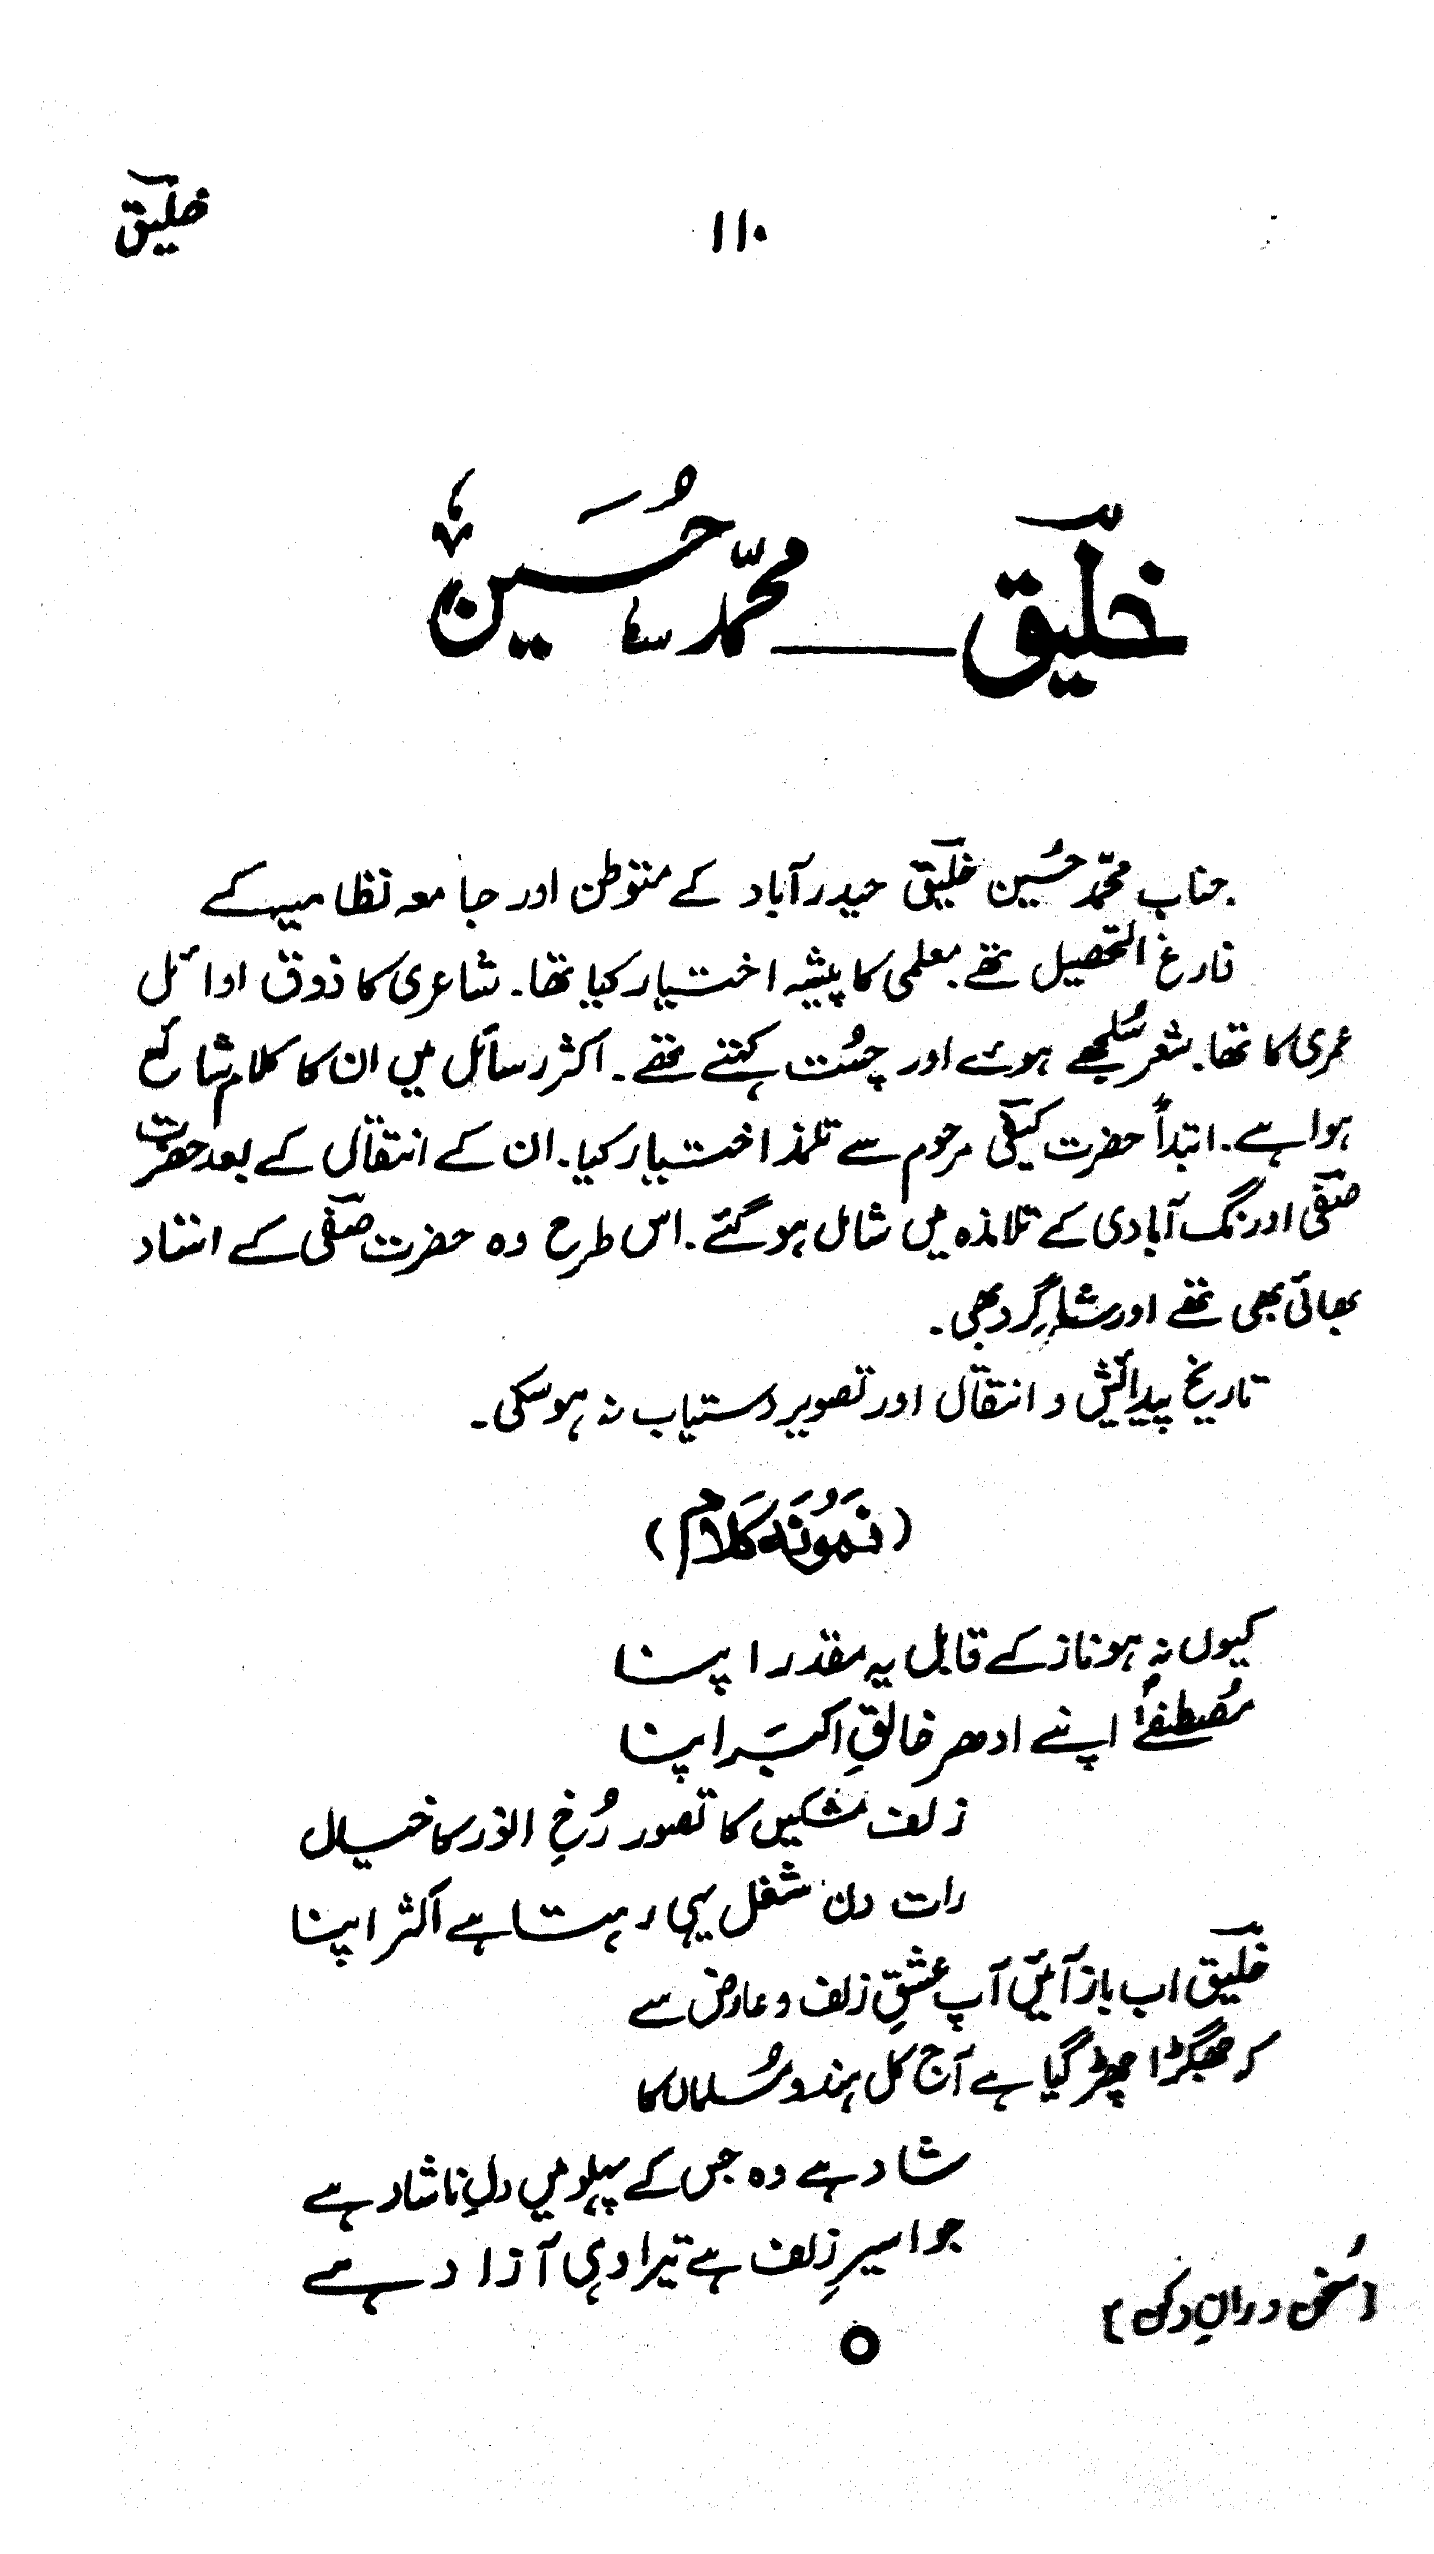 خلیقؔ
۱۱۰
خلیقؔ ــــ محمّد حُسَین
جناب محمّد حُسین خلیقؔ حیدرآباد کے متوطن اور جامعہ نظامیہ کے
فارغ التحصیل تھے۔ معلمی کا پیشہ اختیار کیا تھا۔ شاعری کا ذوق اوائل
عمری کا تھا۔ شعر سُلجھے ہوئے اور چُست کہتے تھے۔ اکثر رسائل میں ان کا کلام شائع
ہوا ہے۔ ابتدأً حضرت کیفیؔ مرحوم سے تلمذ اختیار کیا۔ ان کے انتقال کے بعد حضرت
صفیؔ اورنگ آبادی کے تلامذہ میں شامل ہوگئے۔ اس طرح وہ حضرت صفیؔ کے استاد
بھائی بھی تھے اور شاگِرد بھی۔
تاریخ پیدائش و انتقال اور تصویر دستیاب نہ ہوسکی۔
(نَمُونَہ کَلَام)
کیوں نہ ہو ناز کے قابل یہ مقدر اپنا
مُصطفےٰؐ اپنے ادھر خالقِ اکبَر اپنا
زلف مشکیں کا تصور رُخِ انور کا خیال
رات دن شغل یہی رہتا ہے اکثر اپنا
خلیقؔ اب باز آئیں آپ عشقِ زلف و عارض سے
کہ جھگڑا چھڑ گیا ہے آج کل ہندو مُسلماں کا
شاد ہے وہ جس کے پہلو میں دلِ ناشاد ہے
جو اسیرِ زلف ہے تیرا وہی آزاد ہے
[سُخن ورانِ دکن]